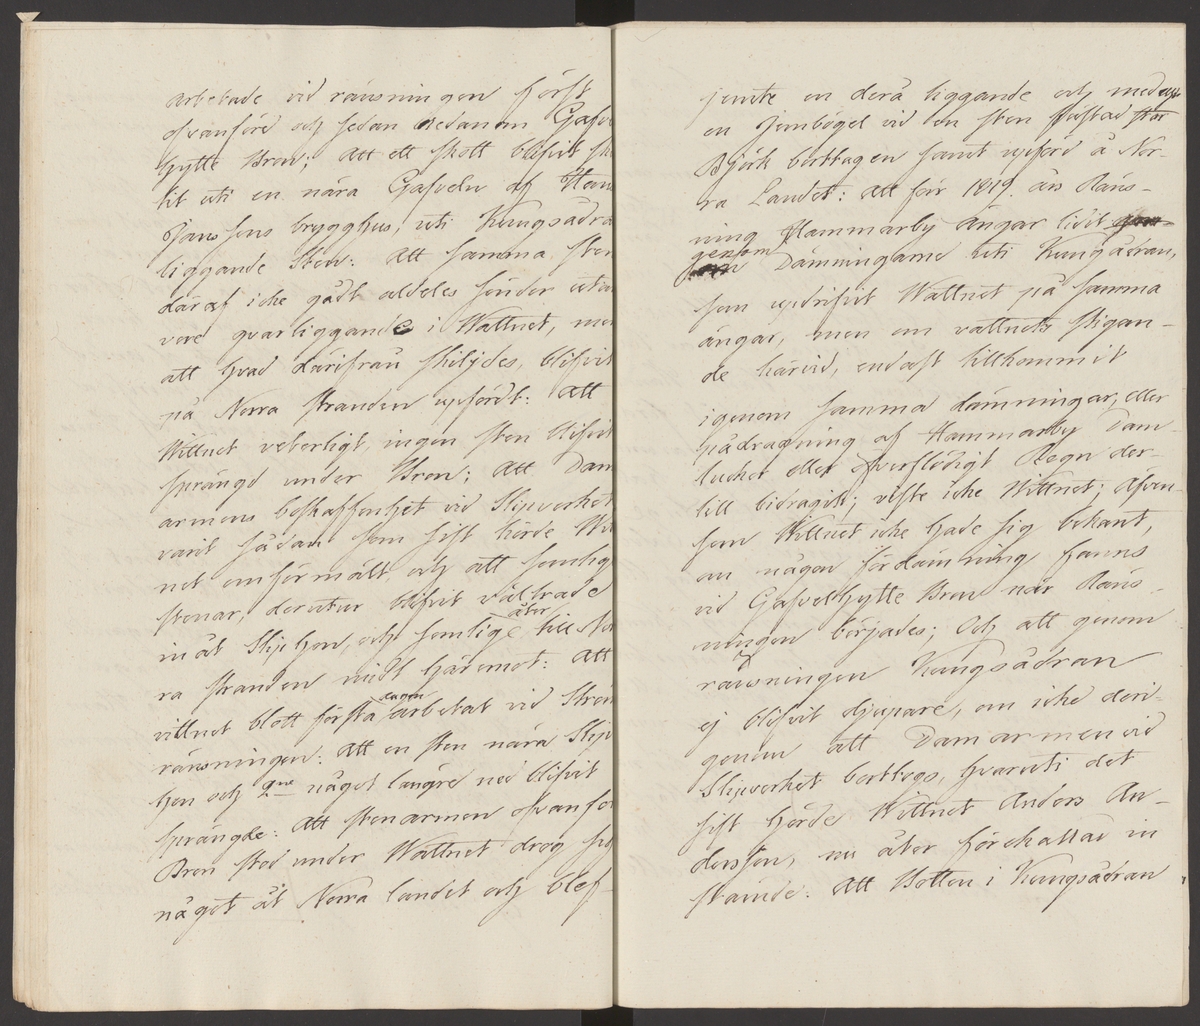 arbetade vid räusningen först
ofvanförd och sedan nedanom Gafve
hytte Bron; att ett skott blifvit sk
tit uti en nära Gafveln af Hans
Janssons brygghus, uti Kungsådra
liggande Sten: Att samma sten
däraf icke gådt aldeles sönder utan
vore qvarliggande i Wattnet, men
att hvad därifrån skiljdes, blifvit
på Norra stranden upfördt: Att
Wittnet veterligt, ingen sten blifvit
sprängd under Bron; Att Dam
armens beskaffenhet vid Slipverket
varit sådan som sist hörde Wit
net omförmält, och att somlige
stenar, derutur blifvit vältrade
inåt Sliphen, och somlige åter till Nor
ra stranden midt häremot: Att
vittnet blott första dagen arbetat vid Ström
räusningen: Att en sten nära Slip
hen och 2ne något längre ned blifvit
sprängde: Att stenarmen ofvanför
Bron stod under Wattnet drog sig
något åt Norra landet och blef
jemte en derå liggande och medelst
en Jernbögel vid en sten fästad stor
Björk borttagen samt upförd å Nor-
ra Landet: att för 1819 års Räus-
ning Hammarby ängar lidit
genom Dämningarne uti Kungsådran,
som updrifvit Wattnet på samma
ängar, men om vattnets stigan-
de härvid, endast tillkommit
igenom samma dämningar, eller
pådragning af Hammarby Dam-
luckor eller öfverflödigt Regn der-
till bidragit; viste icke Wittnet; Äfven-
som Wittnet icke hade sig bekant,
om någon fördämning fanns
vid Gafvelhytte Bron när Räus-
ningen börjades; Och att genom
räusningen Kungsådran
ej blifvit djupare, om icke deri-
genom att Damarmen vid
Slipverket borttogs, hvaruti det
sist hörde Wittnet Anders An-
dersson, nu åter förekallad in
stämde: Att Botten i Kungsådran